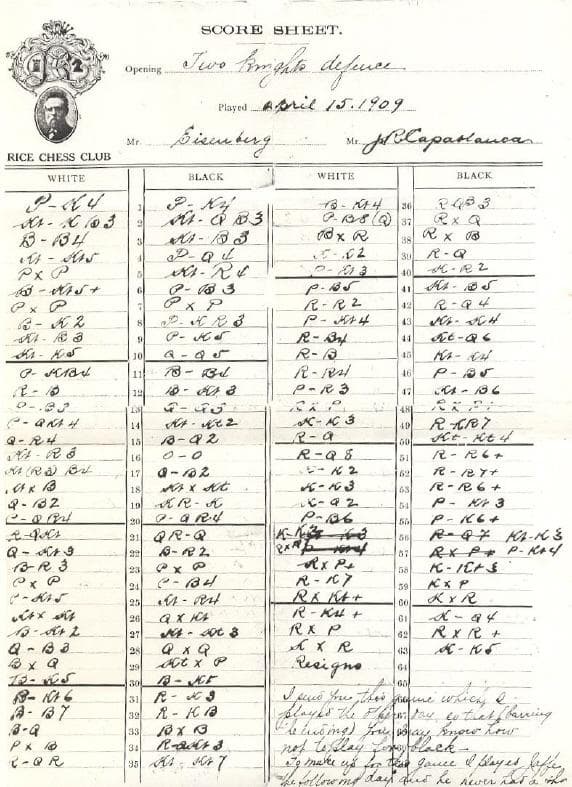 SCORE SHEET.
Opening Two Knights defence
Played April 15. 1909
Mr. Eisenberg Mr. J R Capablanca
RICE CHESS CLUB
WHITE BLACK WHITE BLACK
P-K4 1 P-K4 B-Kt4 36 R-QB3
Kt-KB3 2 Kt-QB3 P-B8(Q) 37 R x Q
B-B4 3 Kt-B3 B x R 38 R x B
Kt-Kt5 4 P-Q4 K-K2 39 R-Q
P x P 5 Kt-R4 P-Kt3 40 K-R2
B-Kt5+ 6 P-B3 P-B5 41 Kt-B5
P x P 7 P x P R-R2 42 R-Q4
B-K2 8 P-KR3 P-Kt4 43 Kt-K4
Kt-B3 9 P-K5 R-B4 44 Kt-Q6
Kt-K5 10 Q-Q5 R-B 45 Kt-K4
P-KB4 11 B-B4 R-R4 46 P-B5
R-B 12 B-Kt3 P-R3 47 Kt-B6
P-B3 13 Q-Q3 R x P 48 R x P+
P-QKt4 14 Kt-Kt2 K-K3 49 R-KR7
Q-R4 15 B-Q2 R-Q 50 Kt-Kt4
Kt-R3 16 O-O R-Q8 51 R-R6+
Kt(R3)B4 17 Q-B2 K-K2 52 R-R7+
Kt x B 18 Kt x Kt K-K3 53 R-R6+
Q-B2 19 KR-K K-Q2 54 P-Kt3
P-QR4 20 P-QR4 P-B6 55 P-K6+
R-QKt 21 QR-Q K-K2 56 R-Q7 Kt-K3
Q-Kt3 22 B-R2 R x R 57 R x P+ P-Kt4
B-R3 23 P x P R x P+ 58 K-Kt3
P x P 24 P-B4 R-K7 59 K x P
P-Kt5 25 Kt-R4 R x Kt+ 60 K x R
Kt x Kt 26 Q x Kt R-K4+ 61 K-Q4
B-Kt2 27 Kt-Kt3 R x P 62 R x R+
Q-B3 28 Q x Q K x R 63 K-K5
B x Q 29 Kt x P Resigns 64
B-K5 30 B-K5 65
B-Kt6 31 R-K3 I send you this game which I
B-B7 32 R-KB played the other day so that (barring
B-Q 33 B x B you may know how
P x B 34 R-Kt3 not to play for black-
R-QR 35 Kt-Kt7 To make up for this game I played Jaffe
the following day and he never had a